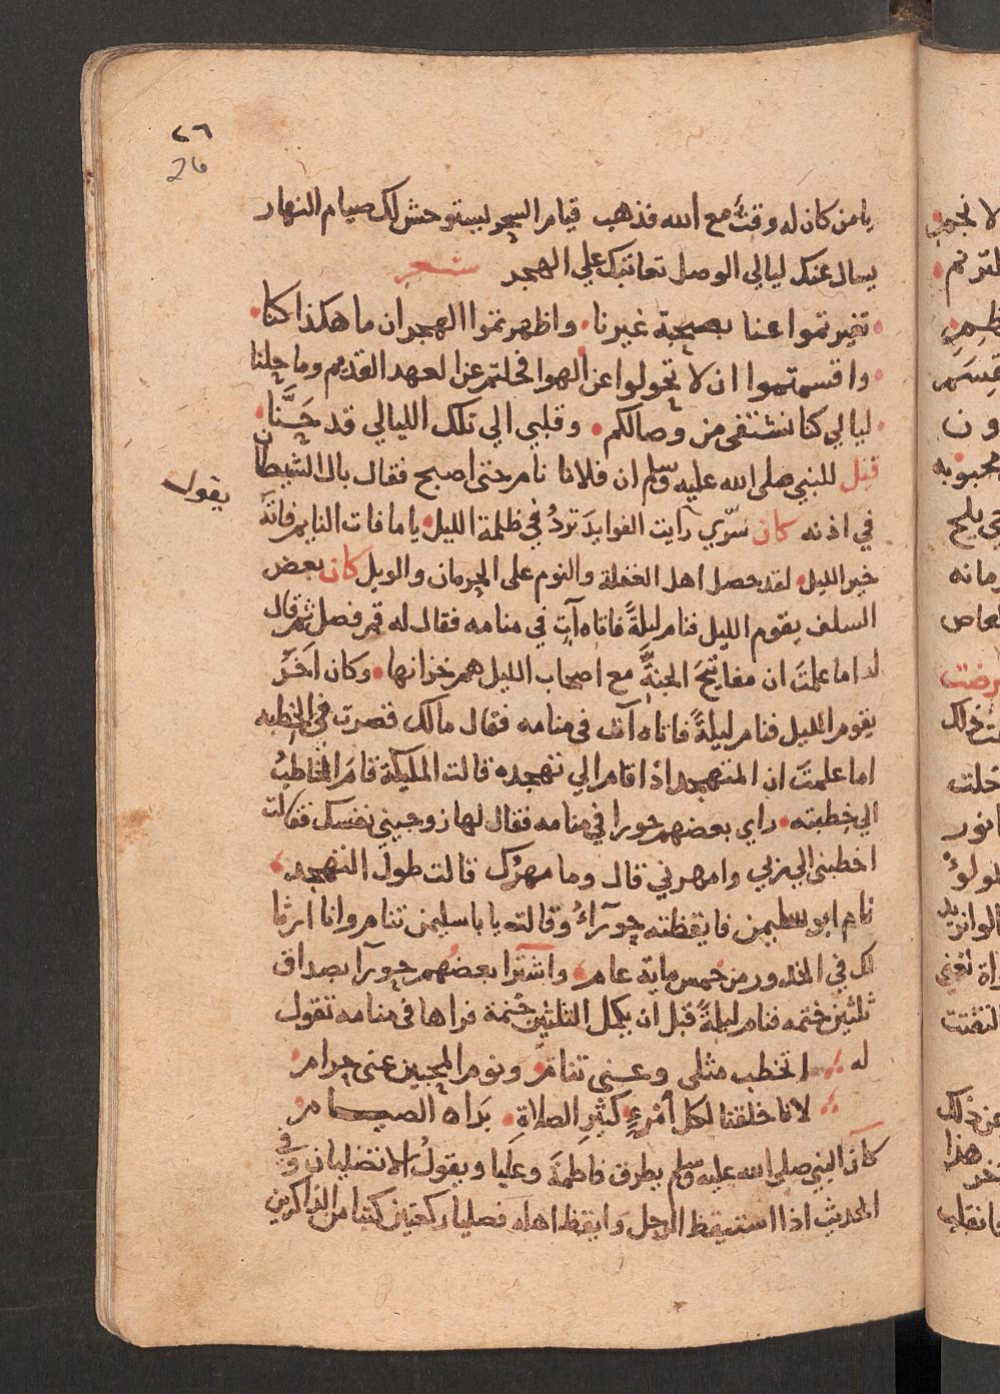 ٢٦
26
يا من كان له وقتٌ مع الله فذهب قيام السحر ليستوحش لك صيام النهار
يسال عنك ليالي الوصل تعاتبك علي الهجر شعر
تغيرتموا عنا بصحبة غيرنا واظهرتموا الهجران ما هكذا كنا
واقسمتموا ان لا تحولوا عن الهوا فحلتم عن العهد القديم وما حلنا
ليالي كنا نشتفي من وصالكم وقلبي الي تلك الليالي قد حَنَّا
قيل للنبي صلي الله عليه وسلم ان فلانا نام حتي اصبح فقال بال الشيطان
في اذنه كان سرّي يقول رايت الفوايدَ تَرِدُ في ظلمة الليل يا ما فات النايم فاتَهُ
خير الليل لقد حصل اهل الغفلة والنوم علي الحرمان والويل كان بعض
السلف يقوم الليل فنام ليلةً فاتاه آتٍ في منامه فقال له قم فصل ثم قال
له اما علمتَ ان مفاتيحَ الجنةِ مع اصحاب الليل هم خزانها وكان اخَرُ
يقوم الليل فنام ليلةً فاتاه آت في منامه فقال مالك قصرت في الخطبه
اما علمتَ ان المتهجد اذا قام الي تهجده قالت المليكة قامَ الخاطبُ
الي خطبته راي بعضهم حورا في منامه فقال لها زوجيني نفسك فقالت
اخطبني الي ربي وامهرني قال وما مهرُك قالت طول التهجد
نام ابو سليمن فايقظته حورآءُ وقالت يا باسليمن تنام وانا اربّا
لك في الخدور من خمس ماية عام واشترا بعضُهم حورآ بصداق
ثلثين ختمه فنام ليلةً قبل ان يكمل الثلثين ختمة فراها في منامه تقول
له اتخطب مثلي وعني تنام ونوم المحبين عني حرام
لانا خلقنا لكل أمْرءٍ كثيرِ الصلاةِ بَرَاه الصيام
كان النبي صلي الله عليه وسلم يطرق فاطمةَ وعليا ويقولُ الا تصليان وفي
الحديث اذا استيقظ الرجل وايقظ اهله فصليا ركعتين كتبا من الذاكرين